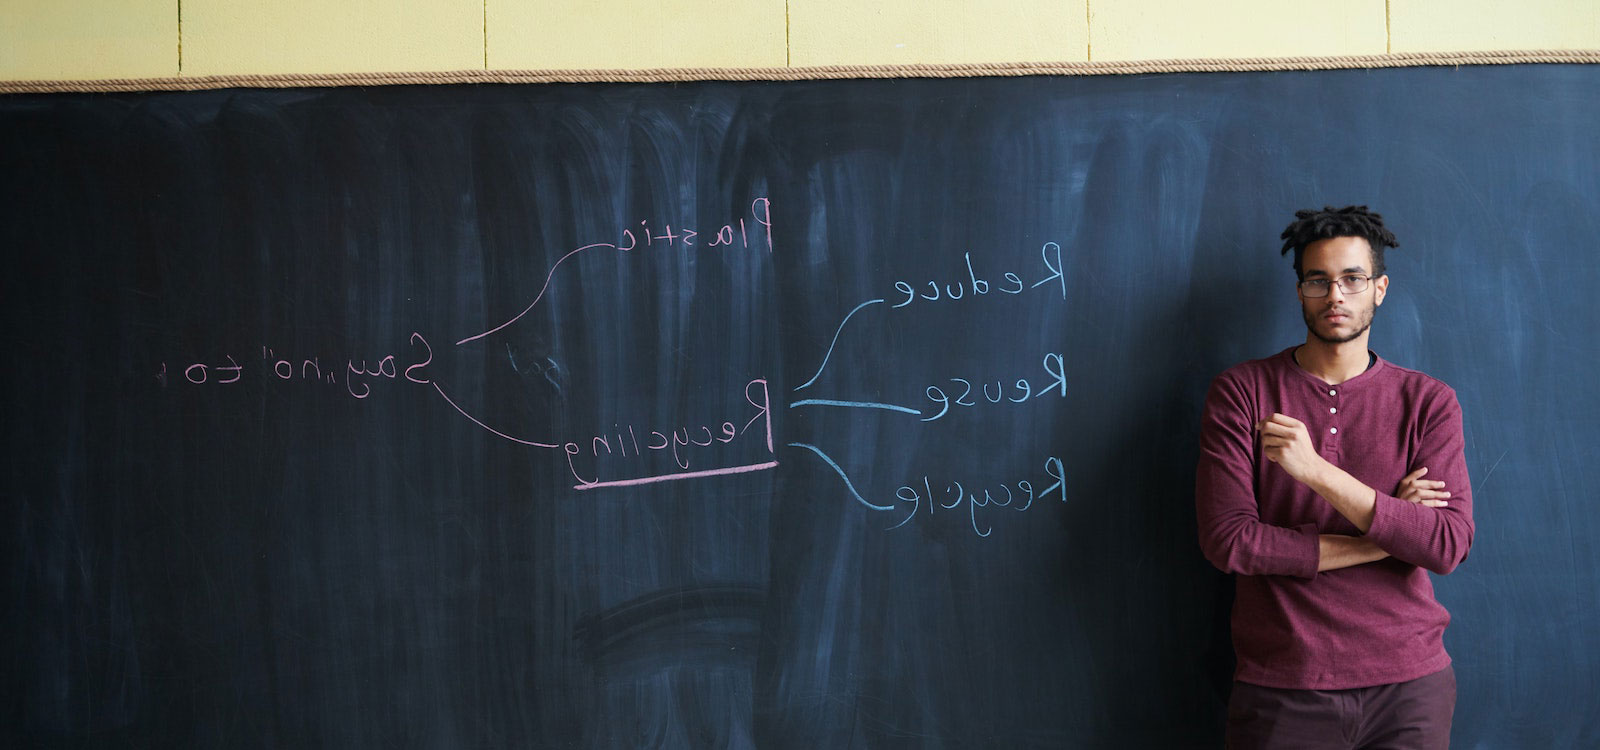 Saying „no" to
Plastic
Recycling
Reduce
Reuse
Recycle